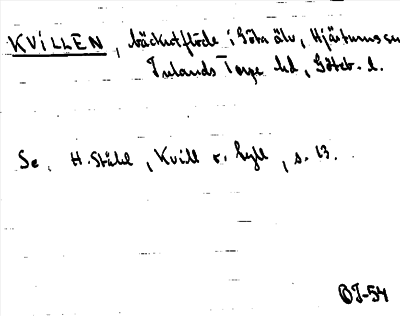 KVILLEN, bäckutflöde i Göta älv, Hjärtums sn
Inlands Torpe hd, Göteb. l.
Se. H. Ståhl, Kvill o. hyll, s. 13.
OJ-54